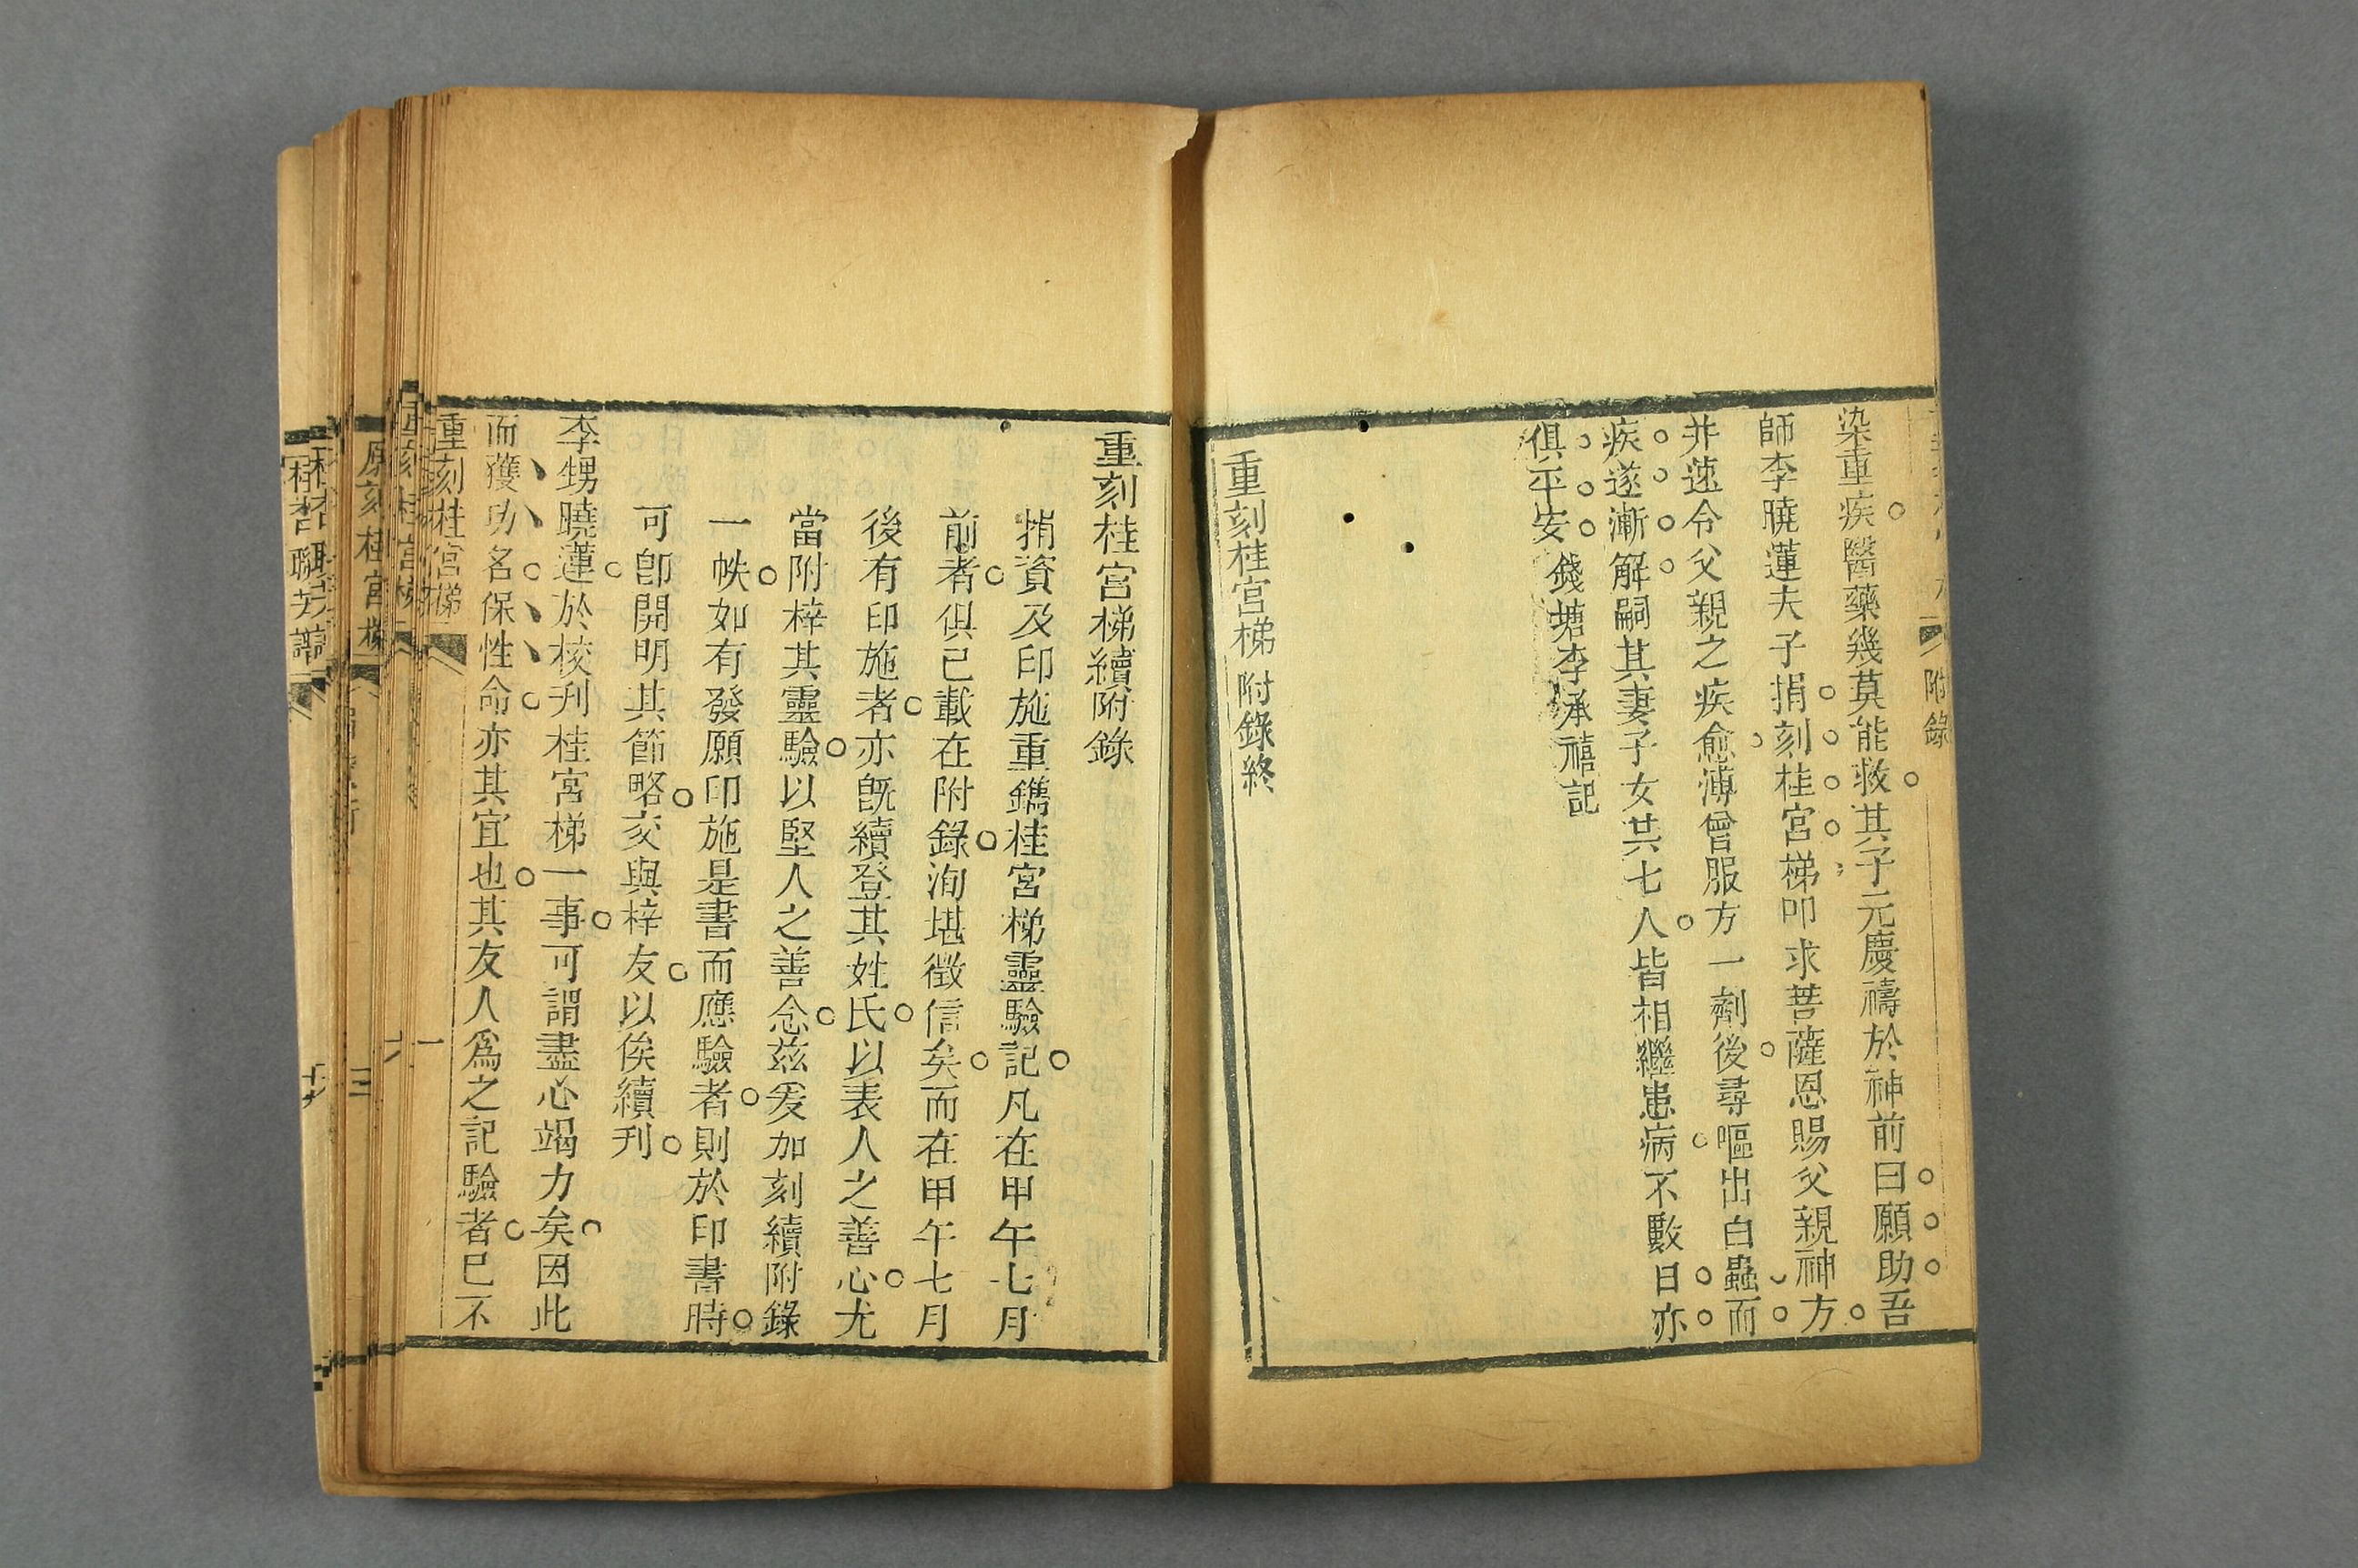 附錄
染重疾醫藥幾莫能救其子元慶禱於神前曰願助吾
師李曉蓮夫子捐刻桂宮梯叩求菩薩恩賜父親神方
并速令父親之疾愈溥曾服方一劑後尋嘔出白蟲而
疾遂漸解嗣其妻子女共七人皆相繼患病不數日亦
俱平安 錢塘李承禧記
重刻桂宮梯 附錄終
重刻桂宮梯續附錄
捐資及印施重鐫桂宮梯靈驗記凡在甲午七月
前者俱已載在附錄洵堪徵信矣而在甲午七月
後有印施者亦旣續登其姓氏以表人之善心尤
當附梓其靈驗以堅人之善念茲爰加刻續附錄
一帙如有發願印施是書而應驗者則於印書時
可卽開明其節略交與梓友以俟續刊
李甥曉蓮於校刋桂宮梯一事可謂盡心竭力矣因此
而獲功名保性命亦其宜也其友人爲之記驗者已不
重刻桂宮梯
一
重刻桂宮梯
原刻桂宮梯
三